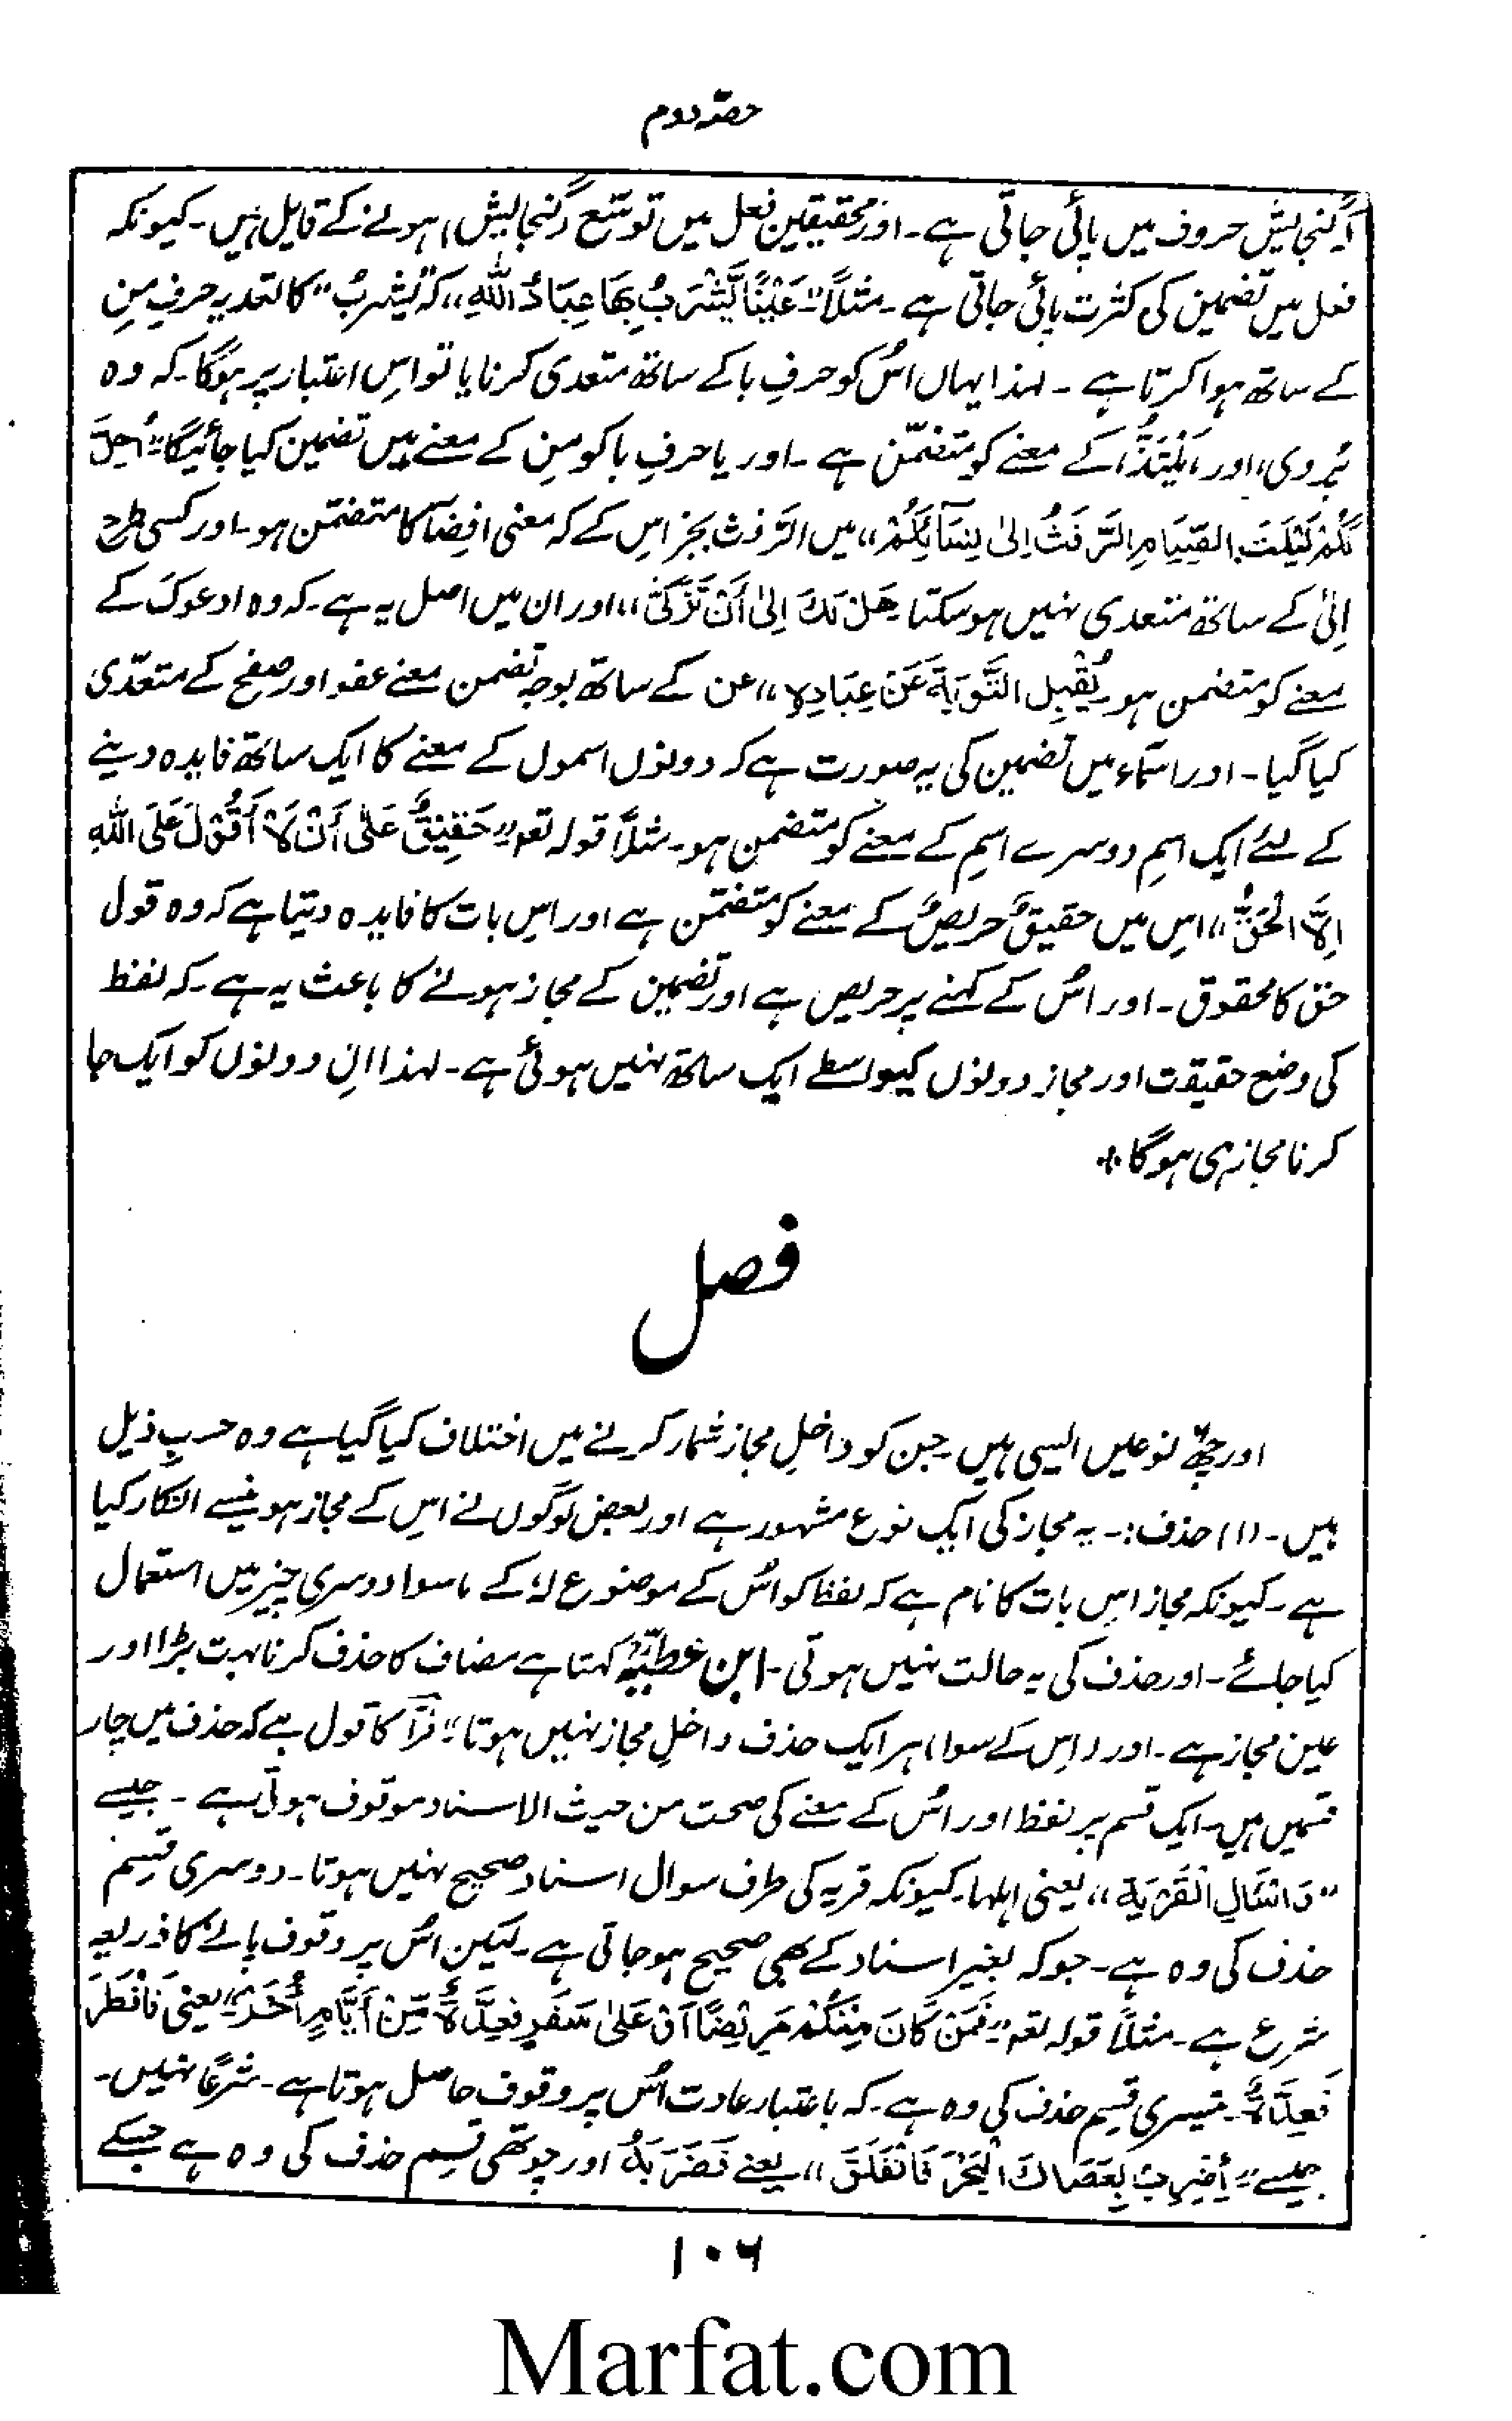 حصّہ دوم
گنجایش حروف میں پائی جاتی ہے۔ اور محققین فعل میں توسّع (گنجایش) ہونے کے قایل ہیں۔ کیونکہ
فعل میں تضمین کی کثرت پائی جاتی ہے۔ مثلاً "عَیْنًا یَّشْرَبُ بِھَا عِبَادُ اللّٰہِ" کہ "یَشْرَبُ" کا تعدیہ حرفِ مِن
کے ساتھ ہوا کرتا ہے۔ لہذا یہاں اُس کو حرفِ با کے ساتھ متعدی کرنا یا تو اِس اعتبار پر ہوگا۔ کہ وہ
یُروی" اور "یَلْتَذُّ" کے معنے کو متضمّن ہے۔ اور یا حرفِ با کو مِن کے معنے میں تضمین کیا جائیگا "اُحِلَّ
لَکُمْ لَیْلَتَ الصِّیَامِ الرَّفَثُ اِلیٰ نِسَآئِکُمْ" میں الرّفث بجز اِس کے کہ معنی افِضَآ کا متضمّن ہو۔ اور کسی طرح
اِلیٰ کے ساتھ متعدی نہیں ہو سکتا ھَلْ لَکَ اِلیٰ اَنْ تَزَکّٰی"، اور ان میں اصل یہ ہے۔ کہ وہ ادعوکَ کے
معنے کو متضمن ہو یُقْبِلِ التَّوْبَۃَ عَنْ عِبَادِہٖ" عن کے ساتھ بوجہ تضمن معنے عفو اور صفح کے متعدّی
کیا گیا۔ اور اسمآء میں تضمین کی یہ صورت ہے کہ دونوں اسموں کے معنے کا ایک ساتھ فایدہ دینے
کے لئے ایک اسم دوسرے اسم کے معنے کو متضمن ہو۔ مثلاً قولہ تعہ "حَقِیْقٌ عَلیٰ اَنْ لَّا اَقُوْلَ عَلَی اللّٰہِ
اِلَّا الْحَقَّ" اِس میں حقیقٌ حریصٌ کے معنے کو متضمّن ہے اور اِس بات کا فایدہ دیتا ہے کہ وہ قول
حق کا محقوق۔ اور اُس کے کہنے پر حریص ہے اور تضمین کے مجاز ہونے کا باعث یہ ہے۔ کہ لفظ
کی وضع حقیقت اور مجاز دونوں کیواسطے ایک ساتھ نہیں ہوئی ہے۔ لہذا اِن دونوں کو ایک جا
کرنا مجاز ہی ہوگا ٭
فصل
اور چھ نوعیں ایسی ہیں۔ جن کو داخلِ مجاز شمار کرنے میں اختلاف کیا گیا ہے وہ حسبِ ذیل
ہیں۔ (۱) حذف:۔ یہ مجاز کی ایک نوع مشہور ہے اور بعض لوگوں نے اِس کے مجاز ہونیسے انکار کیا
ہے۔ کیونکہ مجاز اِس بات کا نام ہے کہ لفظ کو اُس کے موضوع لہٗ کے ماسوا دوسری چیز میں استعمال
کیا جائے۔ اور حذف کی یہ حالت نہیں ہوتی۔ ابن عطیّہؒ کہتا ہے مضاف کا حذف کرنا بہت بڑا اور
عین مجاز ہے۔ اور (اِس کے سوا) ہر ایک حذف داخلِ مجاز نہیں ہوتا" فرّآ کا قول ہے کہ حذف میں چار
قسمیں ہیں۔ ایک قسم پر لفظ اور اُس کے معنے کی صحت من حیث الاسناد موقوف ہوتی ہے۔ جیسے
"وَاسْاَلِ الْقَرْیَۃَ" یعنی اہلہا۔ کیونکہ قریہ کی طرف سوال اسناد صحیح نہیں ہوتا۔ دوسری قسم
حذف کی وہ ہے۔ جو کہ بغیر اسناد کے بھی صحیح ہو جاتی ہے۔ لیکن اُس پر وقوف پانے کا ذریعہ
شرع ہے۔ مثلاً قولہ تعہ "فَمَنْ کَانَ مِنْکُمْ مَرِیْضًا اَوْ عَلیٰ سَفَرٍ فَعِدَّۃٌ مِّنْ اَیَّامٍ اُخَرَ" یعنی فَافْطَرَ
فَعِدَّۃٌ۔ تیسری قسم حذف کی وہ ہے۔ کہ باعتبار عادت اُس پر وقوف حاصل ہوتا ہے۔ شرعًا نہیں۔
جیسے "اَضْرِبْ بِعَصَاکَ الْبَحْرَ فَانْفَلَقَ" یعنے فَضَرَبَہٗ اور چوتھی قسم حذف کی وہ ہے جسکے
۱۰۶
Marfat.com